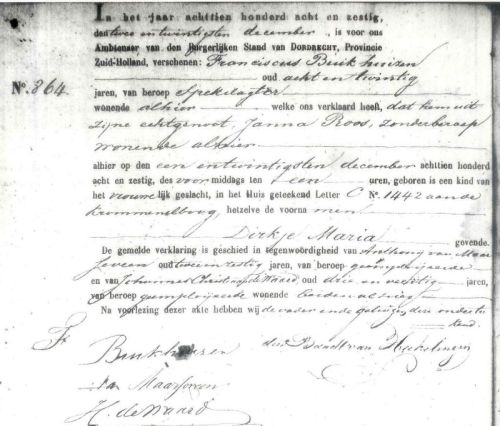 In het jaar achttien honderd acht en zestig,
den twee en twintigsten december, is voor ons
Ambtenaar van den Burgerlijken Stand van DORDRECHT, Provincie
Zuid-Holland, verschenen: Franciscus Buukhuizen
oud acht en twintig
No. 864.
jaren, van beroep
wonende alhier welke ons verklaard heeft, dat hem uit
zijne echtgenoot, Janna Roos, zonder beroep
wonende alhier
alhier op den een en twintigsten december achttien honderd
acht en zestig, des voor middags ten een uren, geboren is een kind van
het vrouwelijk geslacht, in het Huis geteekend Letter C No. 1442 aan de
hetzelve de voornamen
Dirkje Maria gevende.
De gemelde verklaring is geschied in tegenwoordigheid van Anthony van Maar
oud twee en zestig jaren, van beroep geëmployeerde
en van Johannes de Waard oud drie en veertig jaren,
van beroep geemployeerde wonende beiden alhier
Na voorlezing dezer akte hebben wij de vader en de getuigen deze onderte
kend.
Fr Buukhuizen
van Maarseveen
H. de Waard